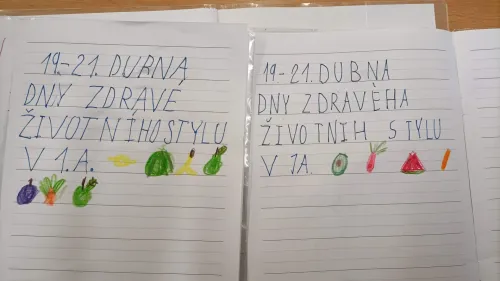 19.-21. DUBNA
DNY ZDRAVÉ
ŽIVOTNÍHO STYLU
V 1.A.
19-21. DUBNA
DNY ZDRAVÈHA
ŽIVOTNIH STYLU
V 1A.